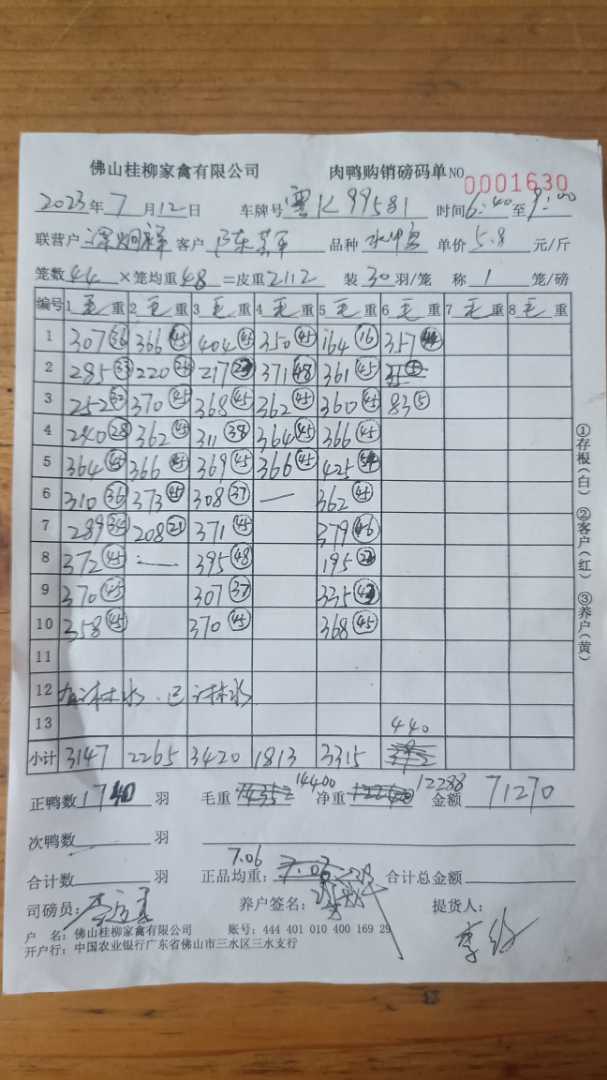 佛山桂柳家禽有限公司 肉鸭购销磅码单 NO 0001630
2023年 7月12日 车牌号 K99581 时间6:40至9:00
联营户 客户 品种 单价 5.8 元/斤
笼数 44 ×笼均重 48 =皮重 2112 装 30 羽/笼 称 1 笼/磅
编号 1 毛 重 2 毛 重 3 毛 重 4 毛 重 5 毛 重 6 毛 重 7 毛 重 8 毛 重
1 307 36 366 45 404 45 350 45 164 16 357
2 285 33 220 25 217 371 48 361 45
3 252 370 45 368 45 362 45 360 45 83 5
4 240 28 362 45 311 38 364 45 366 45
5 364 45 366 45 369 45 366 45 425
6 310 36 373 45 308 37 — 362 45
7 289 34 208 21 371 45 379 46
8 372 45 — 395 48 195
9 370 45 307 37 335
10 358 45 370 45 368 45
11
12 水
13 440
小计 3147 2265 3420 1813 3315
正鸭数 1740 羽 毛重 14400 净重 12288 金额 71270
次鸭数 羽
合计数 羽 正品均重: 7.06 合计总金额
司磅员: 养户签名: 提货人:
户 名: 佛山桂柳家禽有限公司 账号: 444 401 010 400 169 29
开户行: 中国农业银行广东省佛山市三水区三水支行
①存根(白) ②客户(红) ③养户(黄)